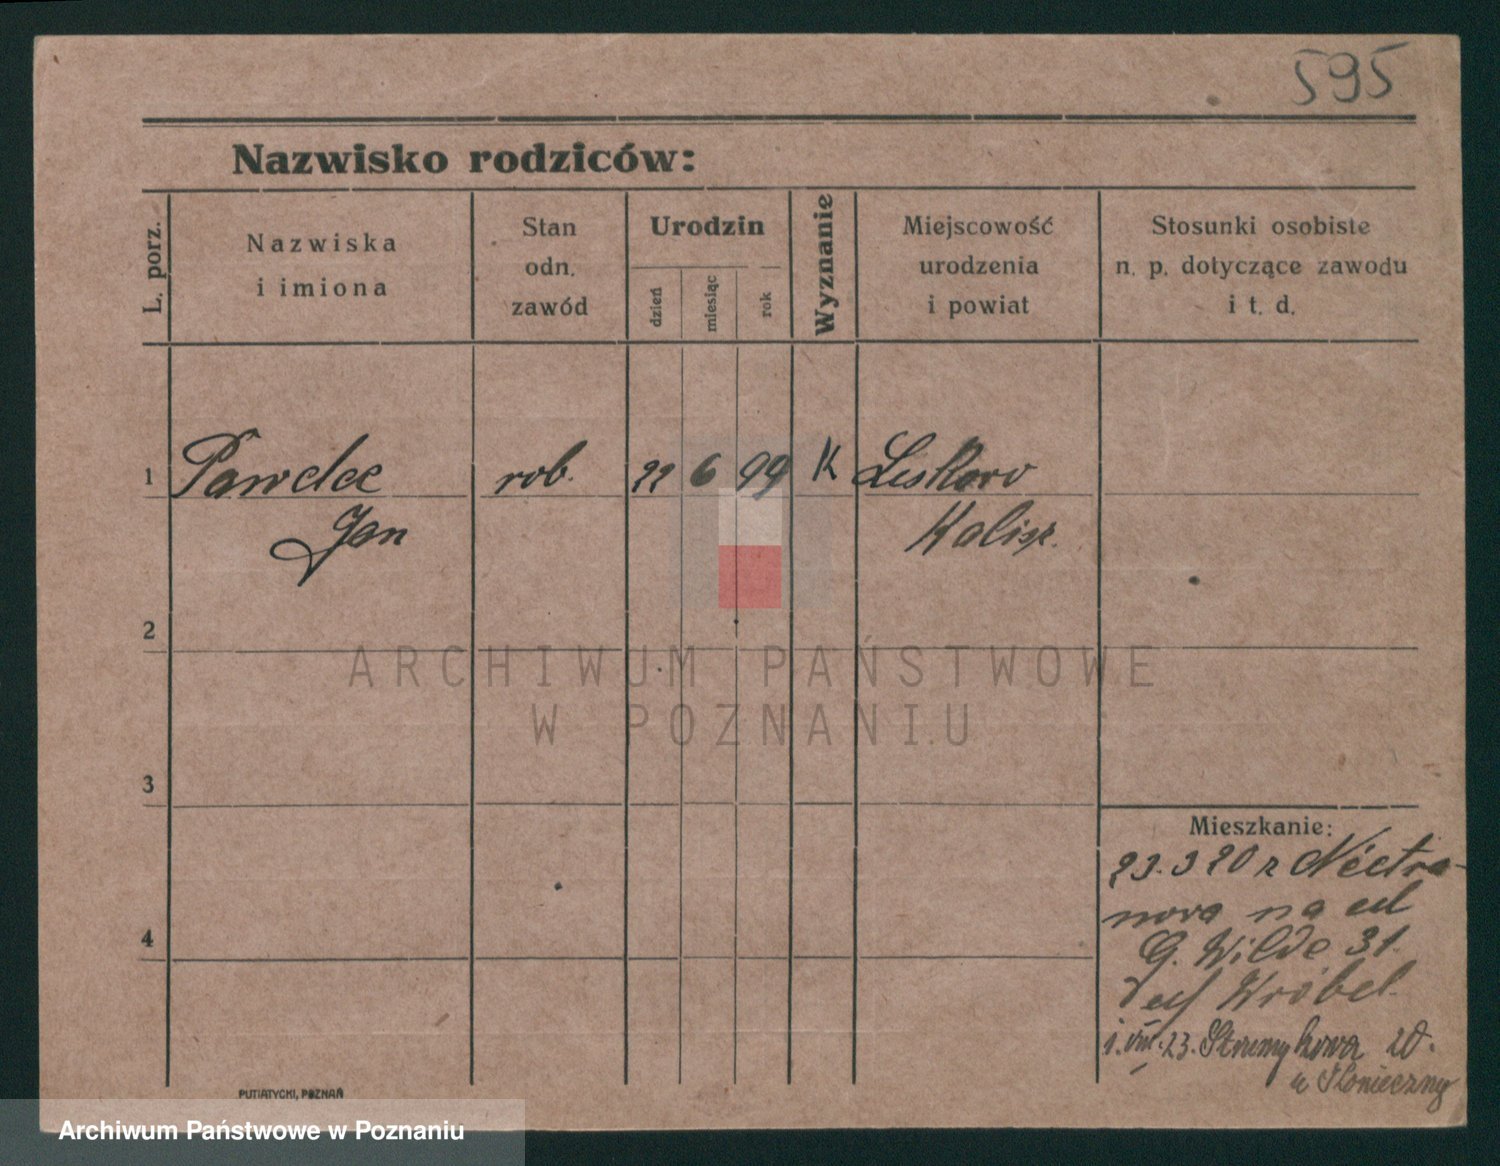 595
Nazwisko rodziców:
L. porz.
Nazwiska
i imiona
Stan
odn.
zawód
Urodzin
dzień
miesiąc
rok
Wyznanie
Miejscowość
urodzenia
i powiat
Stosunki osobiste
n. p. dotyczące zawodu
i t. d.
1 rob. 22 6 99 K Liskowo
Jan Kalisz.
2
3
4
Mieszkanie:
23.3 20 z
na
G. Wilda 31.
Wróbel.
23. Strumykowa 20.
u Konieczny
PUTIATYCKI, POZNAŃ
ARCHIWUM PAŃSTWOWE
W POZNANIU
Archiwum Państwowe w Poznaniu